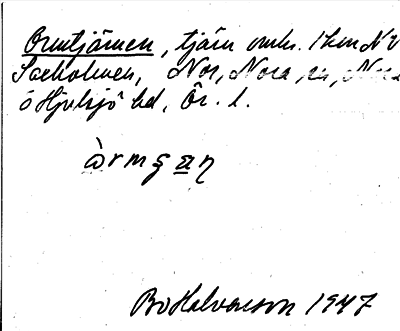 Ormtjärnen, tjärn omkr. 1 km NV
Saxholmen, Nor, Nora sn, Nora
o Hjulsjö bd, Ör. l.
òrmʂan
Bo Halvarson 1947